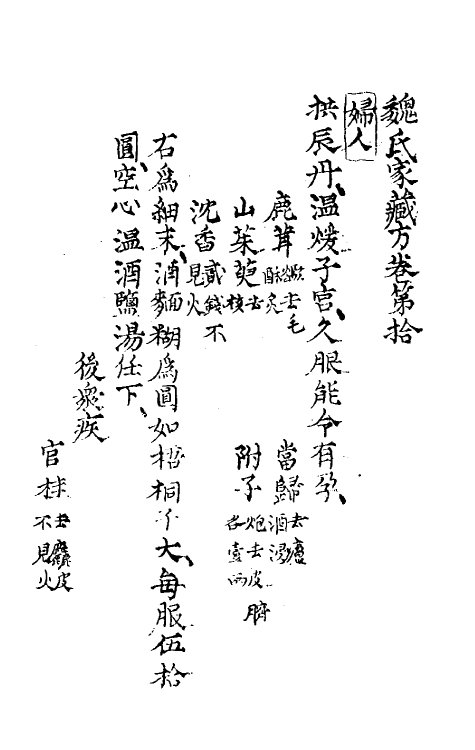 魏氏家藏方卷第拾
婦人
拱辰丹、温煖子宮、久服能令有孕、
鹿茸 㷟去毛酥炙 當歸 去蘆酒浸
山茱萸 去核 附子 炮去皮臍各壹兩
沈香 貳錢不見火
右爲細末、酒麵糊爲圓如梧桐子大、每服伍拾
圓、空心温酒鹽湯任下、
後衆疾
官桂 去麤皮不見火